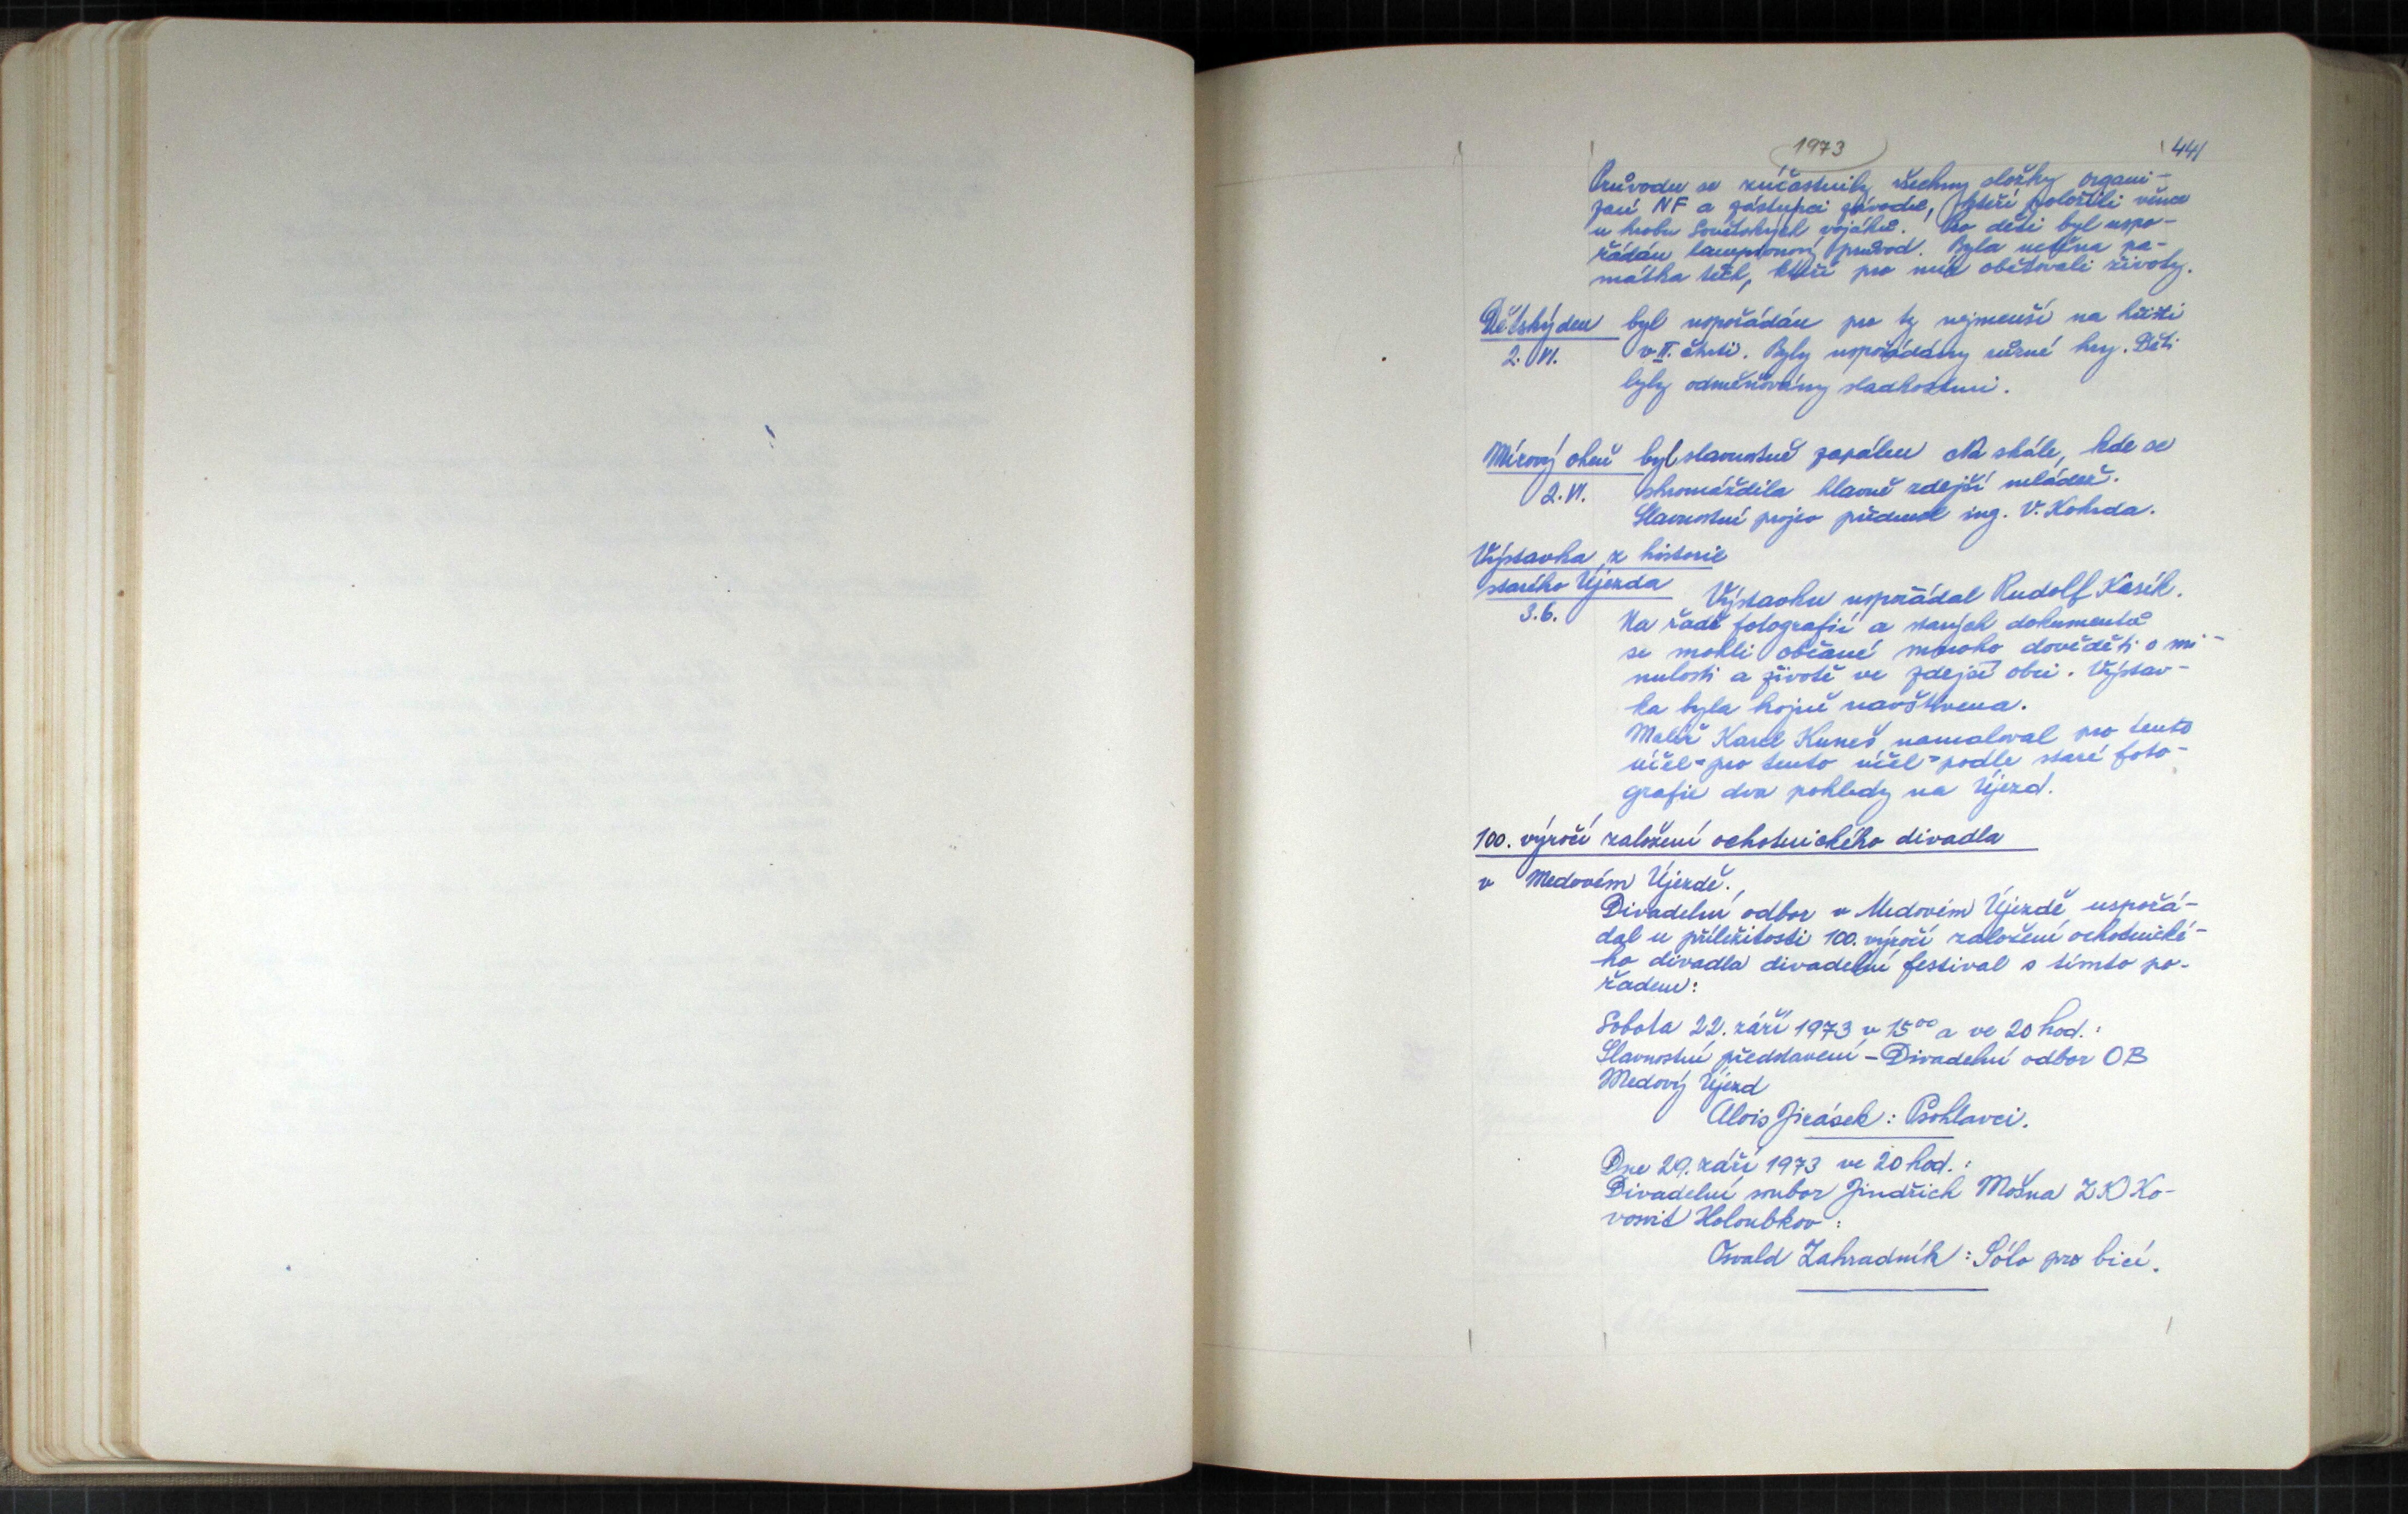 1973
441
Průvodu se zúčastnily všechny složky organi-
zací NF a zástupci závodů, kteří položili věnce
u hrobu Sovětských vojáků. Pro děti byl uspo-
řádán lampionový průvod. Byla uctěna pa-
mátka těch, kteří pro mír obětovali životy.
Dětský den byl uspořádán pro ty nejmenší na hřišti
2. VI. v II. čtvrti. Byly uspořádány různé hry. Děti
byly odměňovány sladkostmi.
Mírový oheň byl slavnostně zapálen Na skále, kde se
2. VI. shromáždila hlavně zdejší mládež.
Slavnostní projev přednesl ing. V. Kohda.
Výstavka z historie
starého Újezda Výstavku uspořádal Rudolf Kasík.
3.6. Na řadě fotografií a starých dokumentů
se mohli občané mnoho dověděti o mi-
nulosti a životě ve zdejší obci. Výstav-
ka byla hojně navštívena.
Malíř Karel Kuneš namaloval pro tento
účel-pro tento účel-podle staré foto-
grafie dva pohledy na Újezd.
100. výročí založení ochotnického divadla
v Medovém Újezdě.
Divadelní odbor v Medovém Újezdě uspořá-
dal u příležitosti 100. výročí založení ochotnické-
ho divadla divadelní festival s tímto po-
řadem:
Sobota 22. září 1973 v 15⁰⁰ a ve 20 hod.:
Slavnostní představení - Divadelní odbor OB
Medový Újezd
Alois Jirásek: Psohlavci.
Dne 29. září 1973 ve 20 hod.:
Divadelní soubor Jindřich Mošna ZK Ko-
vosvit Holoubkov:
Osvald Zahradník: Sólo pro bicí.